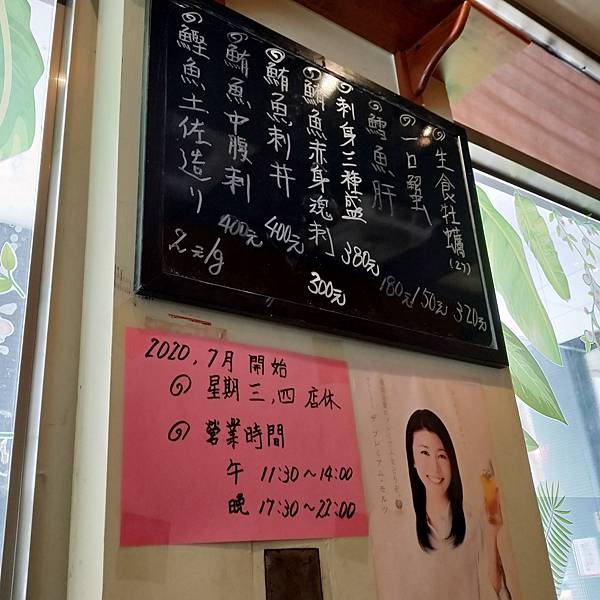 ◎生食牡蠣(2ケ) 320元
◎一口蟹 150元
◎鱈魚肝 180元
◎刺身三種盛 380元
◎鮪魚赤身塊刺 300元
◎鮪魚刺丼 400元
◎鮪魚中腹刺 400元
◎鰹魚土佐造り 2元/g
2020,7月 開始
◎ 星期三,四 店休
◎ 營業時間
午 11:30~14:00
晚 17:30~22:00
ザ・プレミアム・モルツ